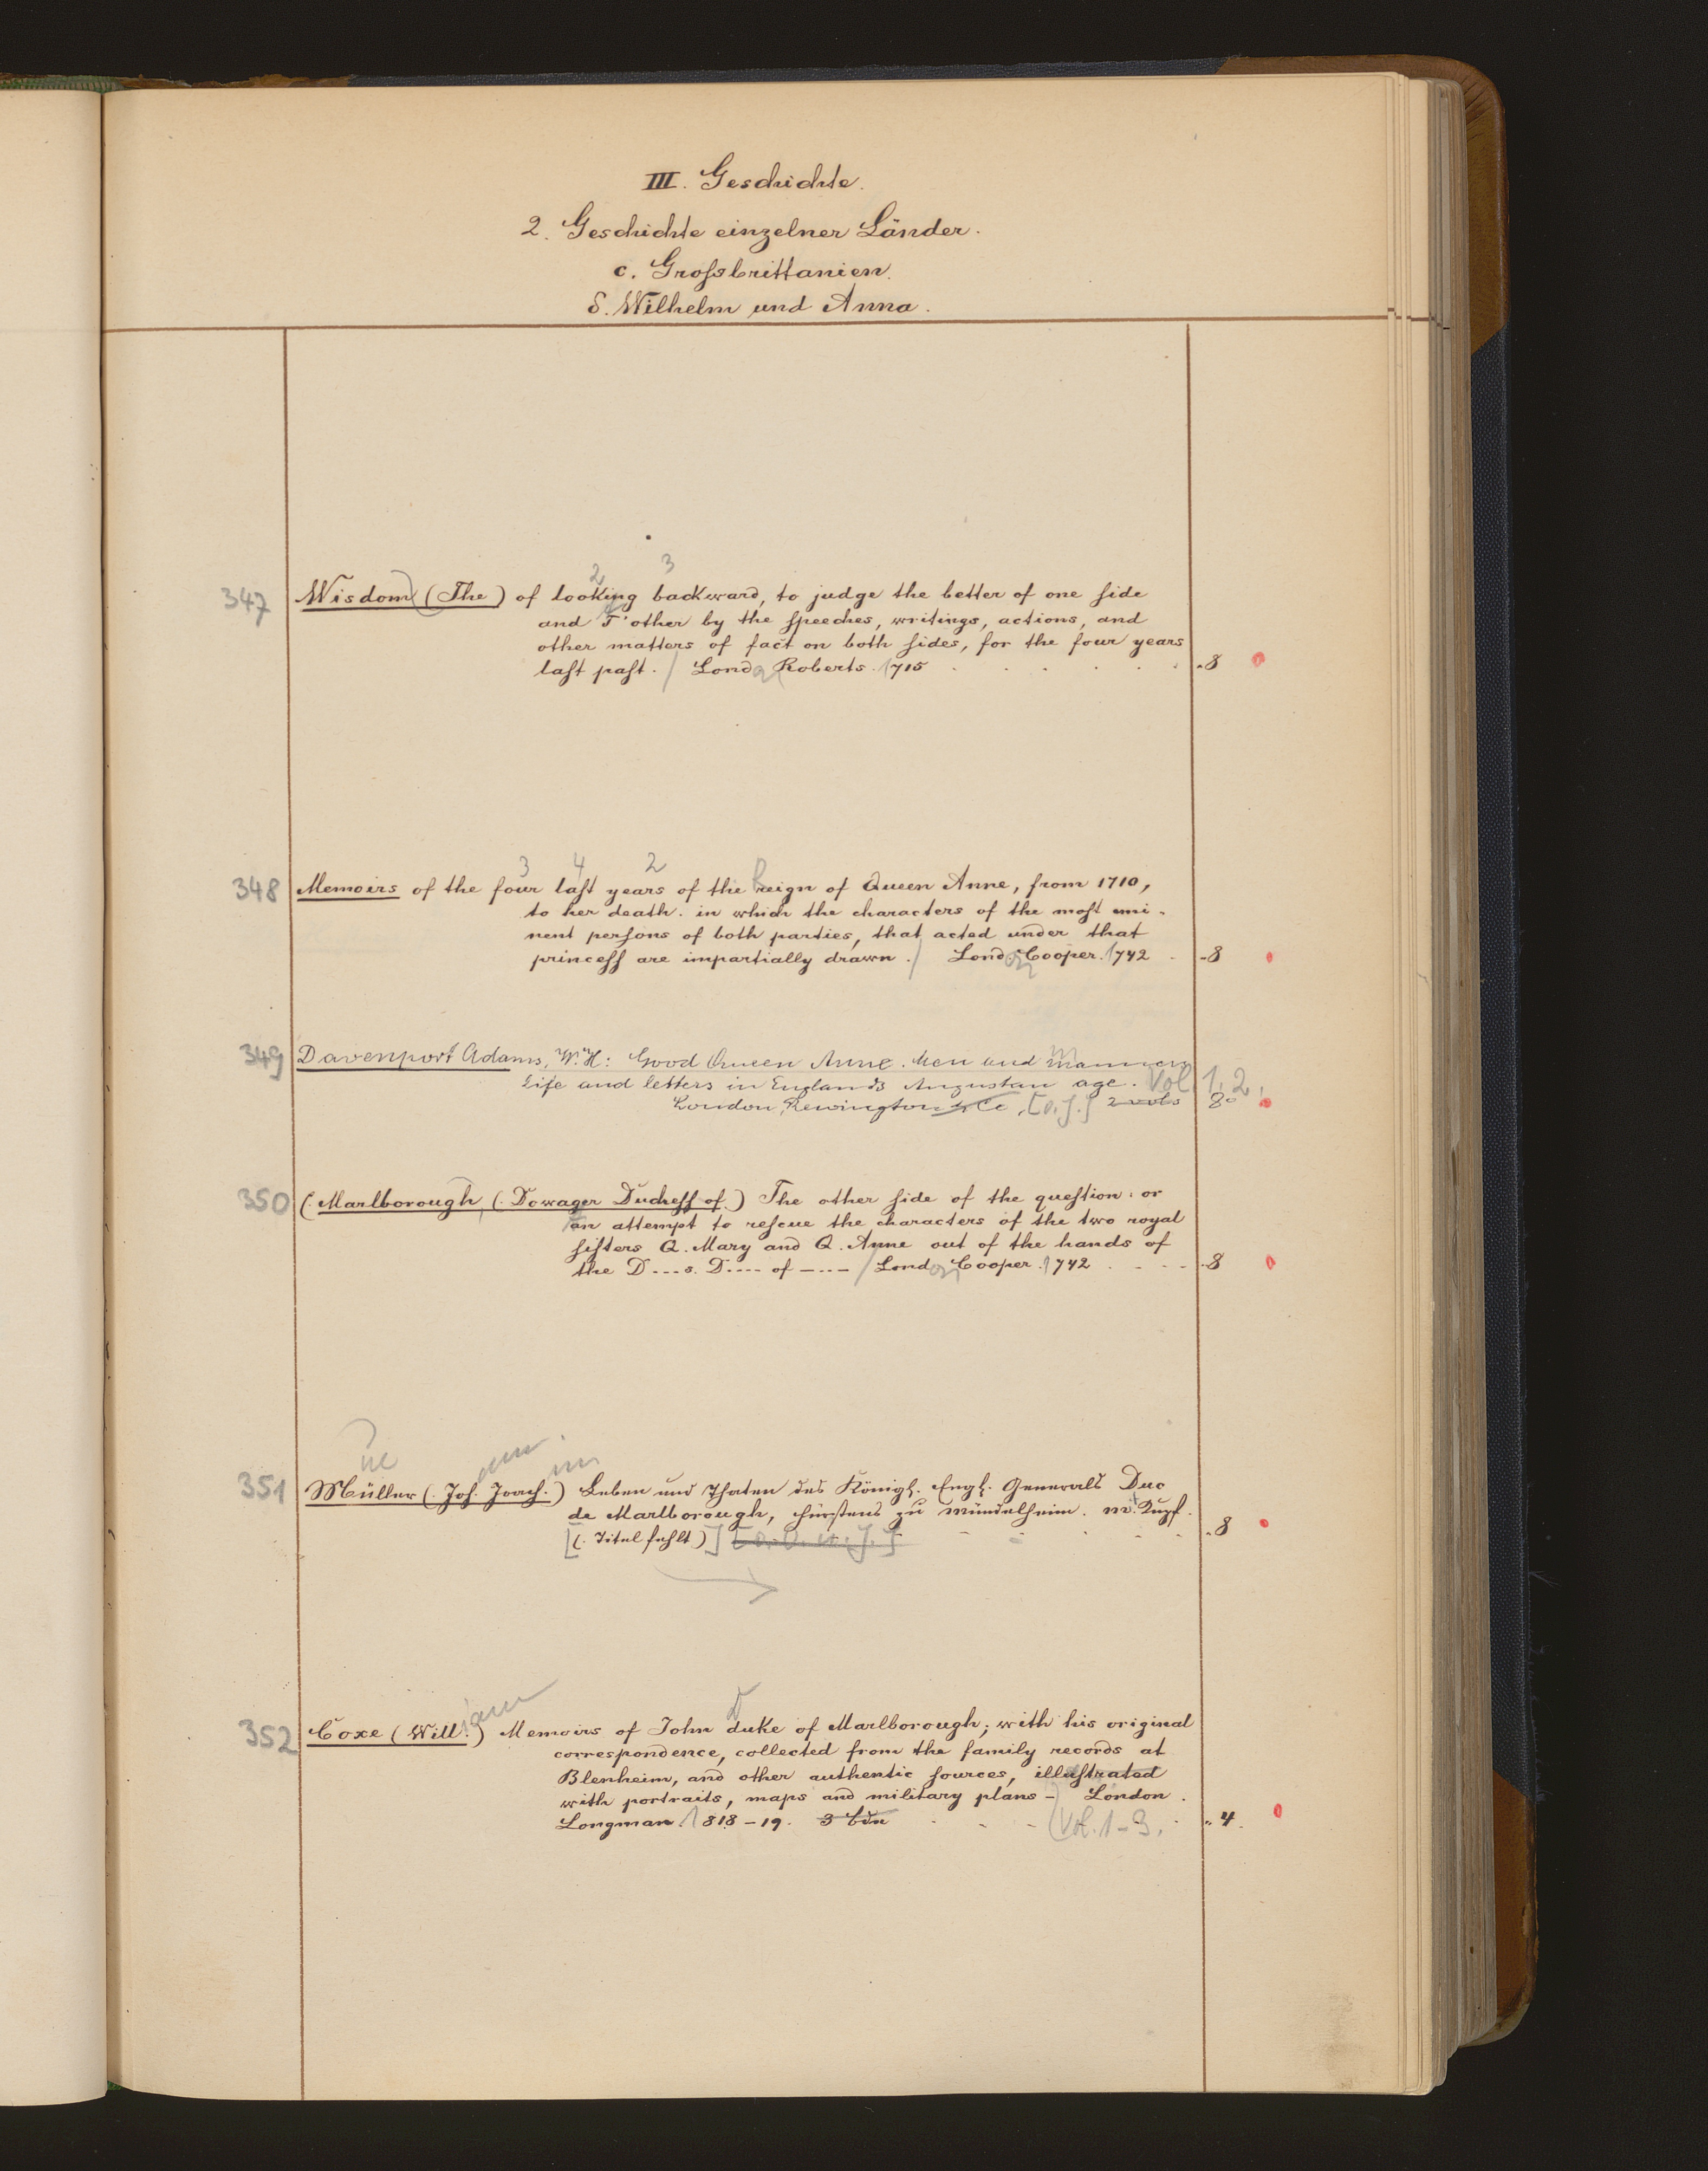 III. Geschichte.
2. Geschichte einzelner Länder.
c. Grossbrittanien.
δ. Wilhelm und Anna.
2 3
347 Wisdom (The) of looking backward, to judge the better of one side
and T'other by the speeches, writings, actions, and
other matters of fact on both sides, for the four years
last past. / London Roberts. 1715 . . . . . 8
3 4 2
348 Memoirs of the four last years of the Reign of Queen Anne, from 1710,
to her death. in which the characters of the most emi-
nent persons of both parties, that acted under that
princess are impartially drawn. / London Cooper. 1742 - 8
349 Davenport Adams, W. H: Good Queen Anne. Men and Manners
life and letters in England's Augustan age. Vol. 1. 2.
London, Remington & Co, [o. J.] 2 vols 8°
350 (Marlborough, (Dowager Duchess of.) The other side of the question: or
an attempt to rescue the characters of the two royal
sisters Q. Mary and Q. Anne out of the hands of
the D---s. D---- of ---- / London Cooper. 1742 . - - - 8
351 Müller (Joh. Joach.) Leben und Thaten des Königl. Engl. Generals Duc
de Marlborough, Fürstens zu Mündelheim. m. Kupf.
[(Titel fehlt)] [o. O. u. J.] - - - - 8
352 Coxe (William) Memoirs of John Duke of Marlborough; with his original
correspondence, collected from the family records at
Blenheim, and other authentic sources, illustrated
with portraits, maps and military plans - London.
Longman. 1818-19. 3 Bde . - - (Vol. 1-3. . 4.